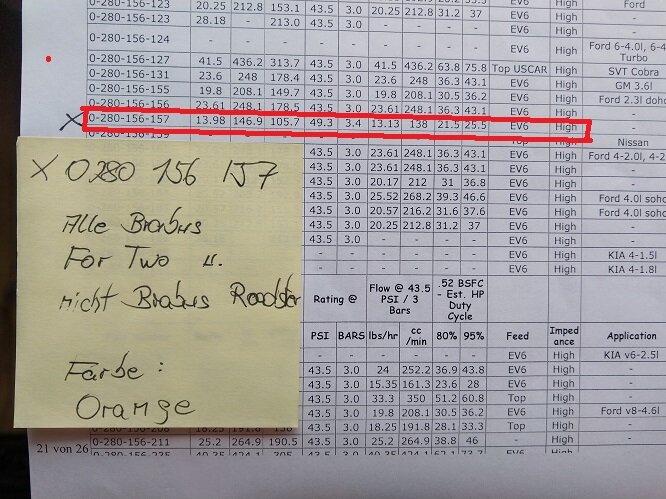 0-280-156-123 20.25 212.8 153.1 43.5 3.0 20.25 212.8 31.2 37 EV6 High Ford
0-280-156-123 28.18 - 213.0 43.5 3.0 - - - - EV6 High -
0-280-156-124 - - - - - - - - - EV6 High Ford 6-4.0l, 6-4
Turbo
0-280-156-127 41.5 436.2 313.7 43.5 3.0 41.5 436.2 63.8 75.8 Top USCAR High SVT Cobra
0-280-156-131 23.6 248 178.4 43.5 3.0 23.6 248 36.3 43.1 EV6 High GM 3.6l
0-280-156-155 19.8 208.1 149.7 43.5 3.0 19.8 208.1 30.5 36.2 EV6 High Ford 2.3l doho
0-280-156-156 23.61 248.1 178.5 43.5 3.0 23.61 248.1 36.3 43.1 EV6 High -
X 0-280-156-157 13.98 146.9 105.7 49.3 3.4 13.13 138 21.5 25.5 EV6 High -
0-280-156-159 Top High Nissan
43.5 3.0 23.61 248.1 36.3 43.1 EV6 High Ford 4-2.0l, 4-2.
43.5 3.0 23.61 248.1 36.3 43.1 EV6 High -
43.5 3.0 20.17 212 31 36.8 EV6 High -
43.5 3.0 25.52 268.2 39.3 46.6 EV6 High Ford 4.0l soho
43.5 3.0 20.57 216.2 31.6 37.6 EV6 High Ford 4.0l soho
43.5 3.0 20.25 212.8 31.2 37 EV6 High -
43.5 3.0 - - - - EV6 High -
- - - - - - EV6 High KIA 4-1.5l
- - - - - - EV6 High KIA 4-1.8l
X 0280 156 157
Alle Brabus
For Two u.
nicht Brabus Roadster
Farbe :
Orange
Rating @ Flow @ 43.5 PSI / 3 Bars .52 BSFC - Est. HP Duty Cycle
PSI BARS lbs/hr cc /min 80% 95% Feed Imped ance Application
- - - - - - EV6 High KIA v6-2.5l
43.5 3.0 24 252.2 36.9 43.8 EV6 High -
43.5 3.0 15.35 161.3 23.6 28 EV6 High -
43.5 3.0 33.3 350 51.2 60.8 Top High -
43.5 3.0 19.8 208.1 30.5 36.2 EV6 High Ford v8-4.6l
0-280-156-208 18.25 191.8 138 43.5 3.0 18.25 191.8 28.1 33.3 Top High -
0-280-156-211 25.2 264.9 190.5 43.5 3.0 25.2 264.9 38.8 46 - High -
0-280-156-235 43.5 3.0 EV6 High
21 von 26